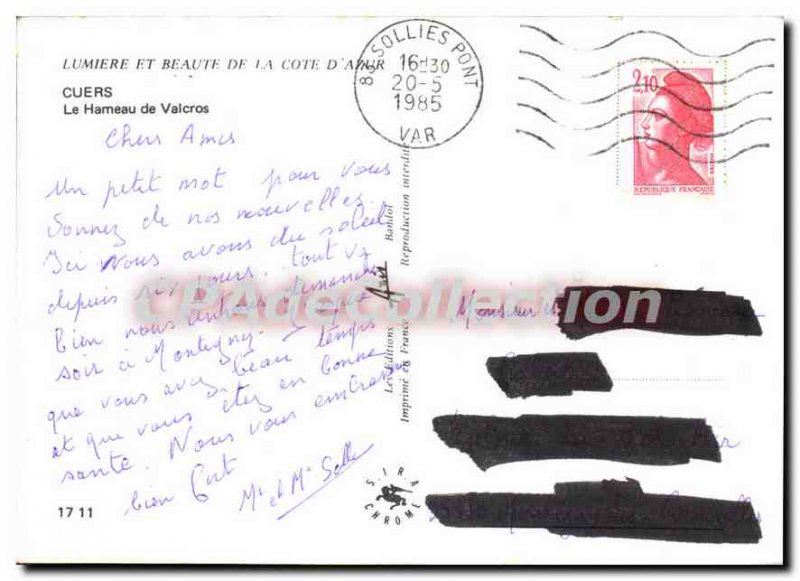 LUMIERE ET BEAUTE DE LA COTE D'AZUR
CUERS
Le Hameau de Valcros
Chers Amis
Un petit mot pour vous
donnez de nos nouvelles
Ici nous avons du soleil
depuis six jours. tout va
bien nous
dimanche
soir à Montigny.
que vous avez beau temps
et que vous êtez en bonne
santé. Nous vous embrassons
bien fort
Mr et Me
17 11
83 SOLLIES PONT
16H30
20-5
1985
VAR
2,10
REPUBLIQUE FRANÇAISE
POSTES
Les Editions Azur Bandol
Imprimé en France Reproduction interdite
SIRA
CHROME
Monsieur
CPAdeCollection